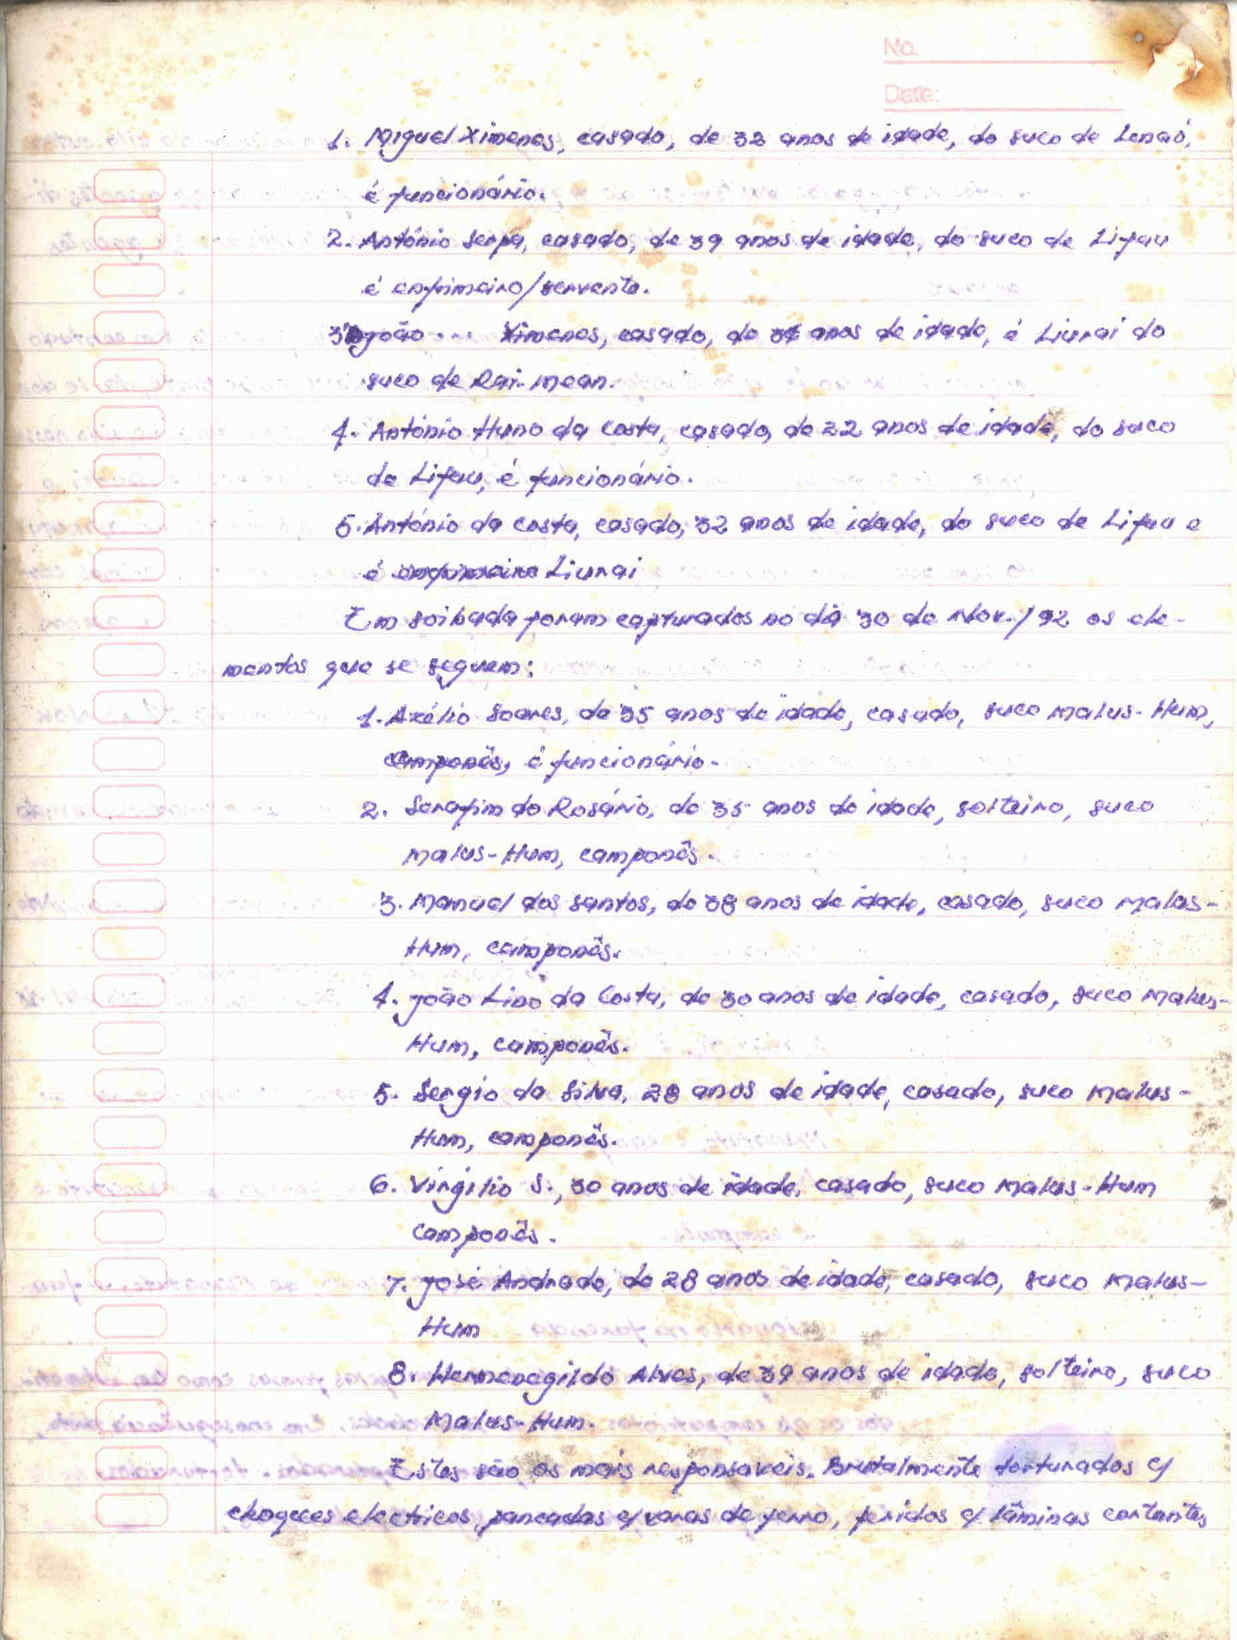 No.
Date:
1. Miguel Ximenes, casado, de 32 anos de idade, do suco de
é funcionário.
2. António Serpa, casado, de 39 anos de idade, do suco de Lifau
é enfrimeiro/servente.
3. João ... Ximenes, casado, de anos de idade, é Liurai do
suco de Rai-mean.
4. António Huno da Costa, casado, de 22 anos de idade, do suco
de Lifau, é funcionário.
5. António da Costa, casado, 32 anos de idade, do suco de Lifau e
é Liurai
Em Soibada foram capturados no dia 30 de Nov./92 os ele-
mentos que se seguem:
1. Azélio Soares, de 35 anos de idade, casado, suco Malus-Hum,
camponês, é funcionário.
2. Serafim do Rosário, de 35 anos de idade, solteiro, suco
Malus-Hum, camponês.
3. Manuel dos Santos, de 38 anos de idade, casado, suco Malus-
Hum, camponês.
4. João Lino da Costa, de 30 anos de idade, casado, suco Malus-
Hum, camponês.
5. Sergio da Silva, 28 anos de idade, casado, suco Malus-
Hum, camponês.
6. Virgílio S., 30 anos de idade, casado, suco Malus-Hum
camponês.
7. José Andrade, de 28 anos de idade, casado, suco Malus-
Hum
8. Hermenegildo Alves, de 39 anos de idade, solteiro, suco
Malus-Hum.
Estes são os mais responsaveis. Brutalmente torturados c/
choques electricos, pancadas c/varas de ferro, feridos c/ lâminas cortantes